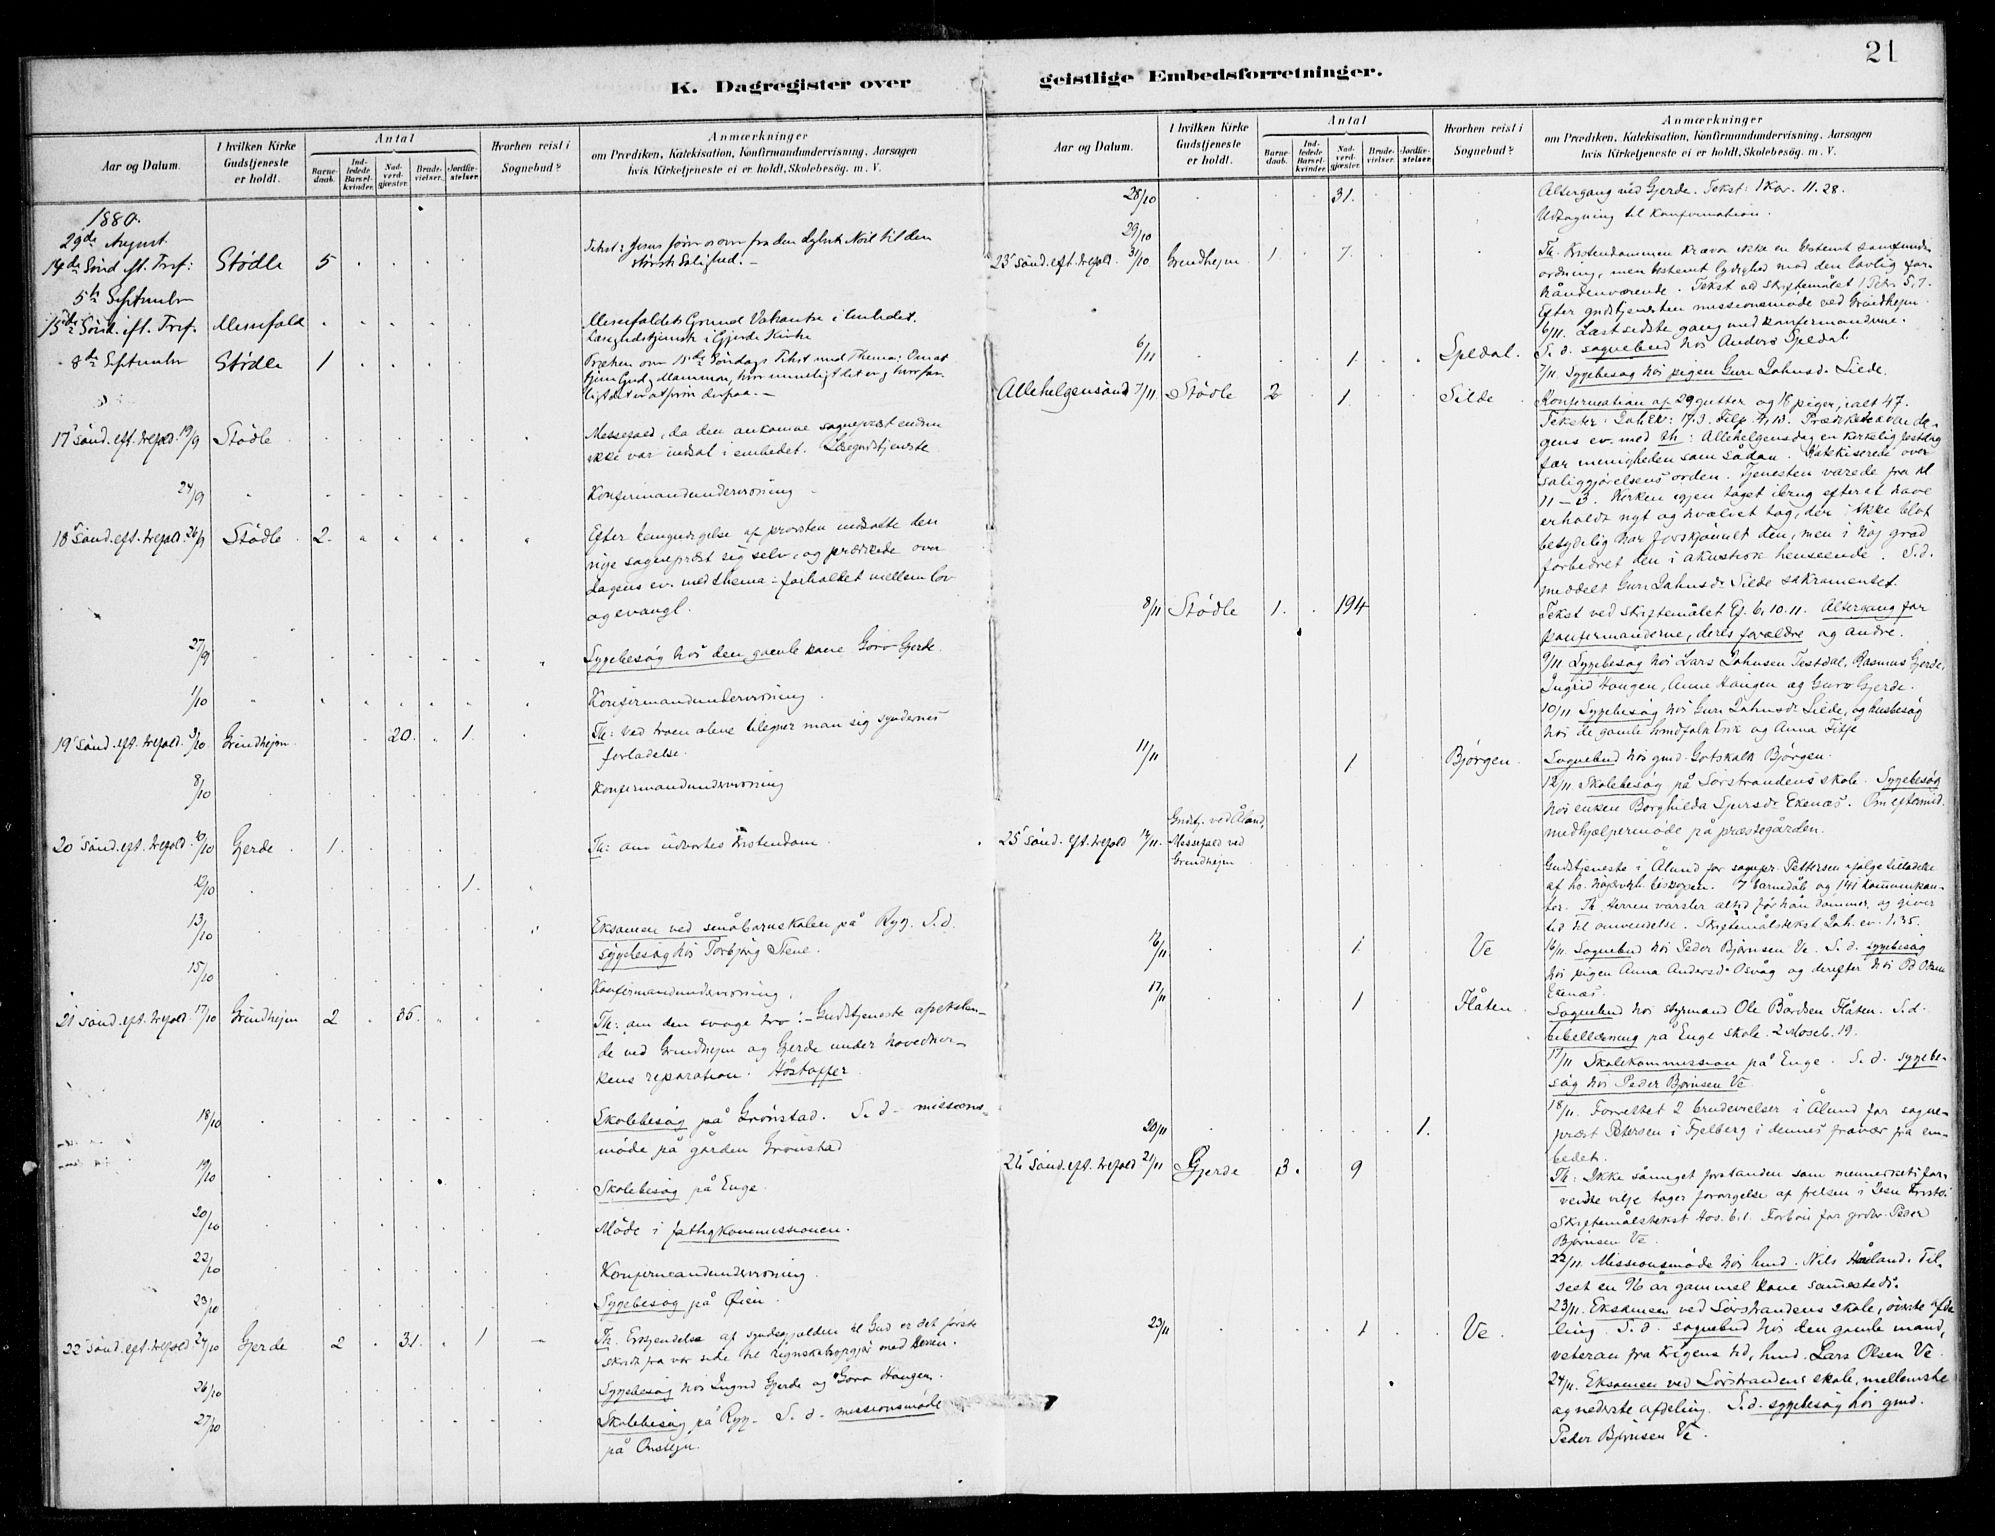 21
K. Dagregister over
geistlige Embedsforretninger.
Aar og Datum.
I hvilken Kirke Gudstjeneste er holdt.
Antal
Barnedaab.
Indledede Barselkvinder.
Nadverdgjæster.
Brudevielser.
Jordfæstelser.
Hvorhen reist i Sognebud?
Anmærkninger
om Prædiken, Katekisation, Konfirmandundervisning, Aarsagen
hvis Kirketjeneste ei er holdt, Skolebesøg. m. V.
1880.
29de August.
14de Sønd. eft. Tref: Stødle 5
Tekst: Jesus fører os om fra den dybeste Nød til den
største Salighed. –
5te September
15de Sønd. eft. Tref. Messefald
Messefaldets Grund Vakantse i Embedet.
Læsegudstjeneste i Gjerde Kirke
8de September Stødle 1
Præken over 15de Søndags Tekst med Thema: Om at
tjene Gud og Mammon, hvor umuligt det er og hvor far-
ligt det er at prøve derpaa. –
17' sønd. eft. trefold. 19/9 Stødle
Messefald, da den ankomne sognepræst endnu
ikke var indsat i embedet. Læsegudstjeneste
24/9 Konfirmandundervisning
18' sønd. eft. trefold. 26/9 Stødle 2.
Efter bemyndigelse af provsten indsatte den
nye sognepræst sig selv, og prædikede over
dagens ev. med thema: forholdet mellem lov
og evangl.
27/9 Sygebesøg hos den gamle kone Goro Gjerde.
1/10 Konfirmandundervisning
19' sønd. eft. trefold. 3/10 Grindhejm 20. 1.
Th: Ved troen alene tilegner man sig syndernes
forladelse.
8/10 Konfirmandundervisning
20' sønd. eft. trefold 10/10 Gjerde 1.
Th: om udvortes kristendom.
12/10 1.
13/10 Eksamen ved småbarnskolen på Ryg. S. d.
sygebesøg hos Torbjørg Stene.
15/10 Konfirmandundervisning.
21' sønd. eft. trefold. 17/10 Grindhejm 2 35.
Th: om den svage tro: – Gudstjeneste afveksлen-
de ved Grindhejm og Gjerde under hovedkir-
kens reparation. Høstoffer.
18/10 Skolebesøg på Grønstad. S. d. missions-
møde på gården Grønstad
19/10 Skolebesøg på Enge.
20/10 Møde i fattigkommissionen.
22/10 Konfirmandundervisning.
23/10 Sygebesøg på Øien.
22' sønd. eft. trefold. 24/10 Gjerde 2 31. 1
Th: Erkjendelse af syndegjælden til Gud er det første
skridt fra vor side til regnskabsopgjør med Herren.
26/10 Sygebesøg hos Ingrid Gjerde og Goro Haugen.
27/10 Skolebesøg på Ryg. S. d. missionsmøde
på
Aar og Datum.
I hvilken Kirke Gudstjeneste er holdt.
Antal
Barnedaab.
Indledede Barselkvinder.
Nadverdgjæster.
Brudevielser.
Jordfæstelser.
Hvorhen reist i Sognebud?
Anmærkninger
om Prædiken, Katekisation, Konfirmandundervisning, Aarsagen
hvis Kirketjeneste ei er holdt, Skolebesøg. m. V.
28/10 31. Altergang ved Gjerde. Tekst: 1 Kor. 11. 28.
29/10 Udtagning til konfirmation.
23' sønd. eft. trefold. 31/10 Grindhejm 1 7.
Th. Kristendommen kræver ikke en bestemt samfunds-
ordning, men bestemt lydighed mod den lovlig for-
håndenværende. Tekst ved skriftemålet 1 Petr. 5, 7.
Efter gudstjenesten missionsmøde ved Grindhejm.
6/11. Læst sidste gang med konfirmanderne.
6/11 1 Speldal. S. d. sognebud hos Anders Speldal
7/11 Sygebesøg hos pigen Guri Johnsd. Silde.
Allehelgensønd. 7/11 Stødle 2 1. Silde
Konfirmation af 29 gutter og 18 piger, ialt 47.
Prædikede over da-
gens ev. med th: Allehelgensdag en kirkelig festdag
for menigheden som sådan. Katekiserede over
saliggjørelsens orden. Tjenesten varede fra kl
11 – 3. Kirken igjen taget ibrug efter at have
erholdt nyt og hvælvet tag, der ikke blot
betydelig har forskjønnet den, men i høj grad
forbedret den i akustisk henseende. S. d.
meddelt Guri Johnsdr Silde sakramentet
8/11 Stødle 1. 194
Tekst ved skriftemålet Ef. 6, 10. 11. Altergang for
konfirmanderne, deres forældre og andre.
9/11 Sygebesøg hos Lars Johnsen Testdal, Rasmus Gjerde,
Ingrid Haugen, Anne Haugen og Guro Gjerde.
10/11 Sygebesøg hos Guri Johnsdr Silde, og husbesøg
hos de gamle og Anna Fitje
11/11 1 Bjørgen. Sognebud hos gmd. Gotskalk Bjørgen.
12/11. Skolebesøg på Sørstrandens skole. Sygebesøg
hos enken Borghilda Sjursdr Ekenæs. Om eftermid.
medhjælpermøde på præstegården.
25' sønd. eft. trefold 14/11. Gudstj. ved Åland,
Messefald ved
Grindhejm
Gudstjeneste i Ålund for sognepr. Pettersen ifølge tilladelse
af hr. biskopen. 7 barnedåb og 141 kommunikan-
ter. Th. Herren varsler altid før han dømmer, og giver
tid til omvendelse. Skriftemålstekst Joh. ev. 1. 35.
16/11 1 Ve 16/11. Sognebud hos Peder Bjørnsen Ve. S. d. sygebesøg
hos pigen Anna Andersd. Osvåg og derefter hos Ekenæs.
17/11 1 Flåten. Sognebud hos styrmand Ole Bårdsen Flåten. S. d.
bibellæsning på Enge skole. 2 Moseb. 19.
17/11 Skolekommission på Enge. S. d. sygebe-
søg hos Peder Bjørnsen Ve.
18/11. Forrettet 2 brudevielser i Ålund for sogne-
præst Petersen i Fjelberg i dennes fravær fra em-
bedet.
20/11 1.
26' sønd. eft. trefold 21/11 Gjerde 3. 9
Th: Ikke såmeget forstanden som menneskets for-
vendte vilje tager forargelse af frelsen i Jesu Kristo.
Skriftemålstekst Hos. 6. 1. Forbøn for Peder
Bjørnsen Ve.
22/11. Missionsmøde hos hmd. Nils Håland. Til-
sest en 96 år gammel kone sammesteds.
23/11. Eksamen ved Sørstrandens skole, øverste afde-
23/11 1 Ve ling. S. d. sognebud hos den gamle mand,
veteran fra krigens tid, hmd. Lars Olsen Ve
24/11. Eksamen ved Sørstrandens skole, mellemste
og nederste afdeling. S. d. sygebesøg hos gmd.
Peder Bjørnsen Ve.